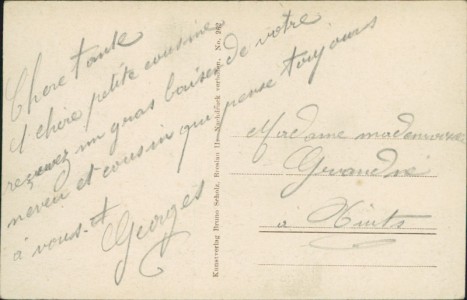 Chere tante
et chere petite cousine
recevez un gros baiser de votre
neveu et cousin qui pense toujours
à vous. et
Georges
Kunstverlag Bruno Scholz, Breslau II— Nachdruck verboten. No. 287
Madame mademoiselle
à